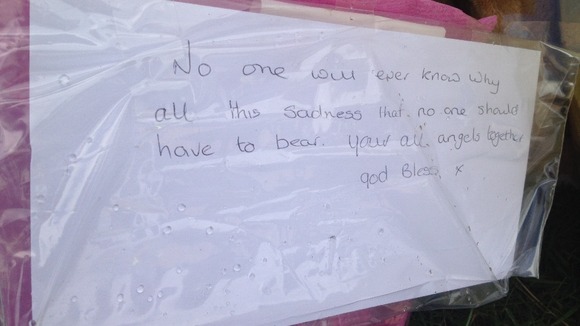 No one will ever know why
all this sadness that no one should
have to bear. Your all angels together
god Bless x